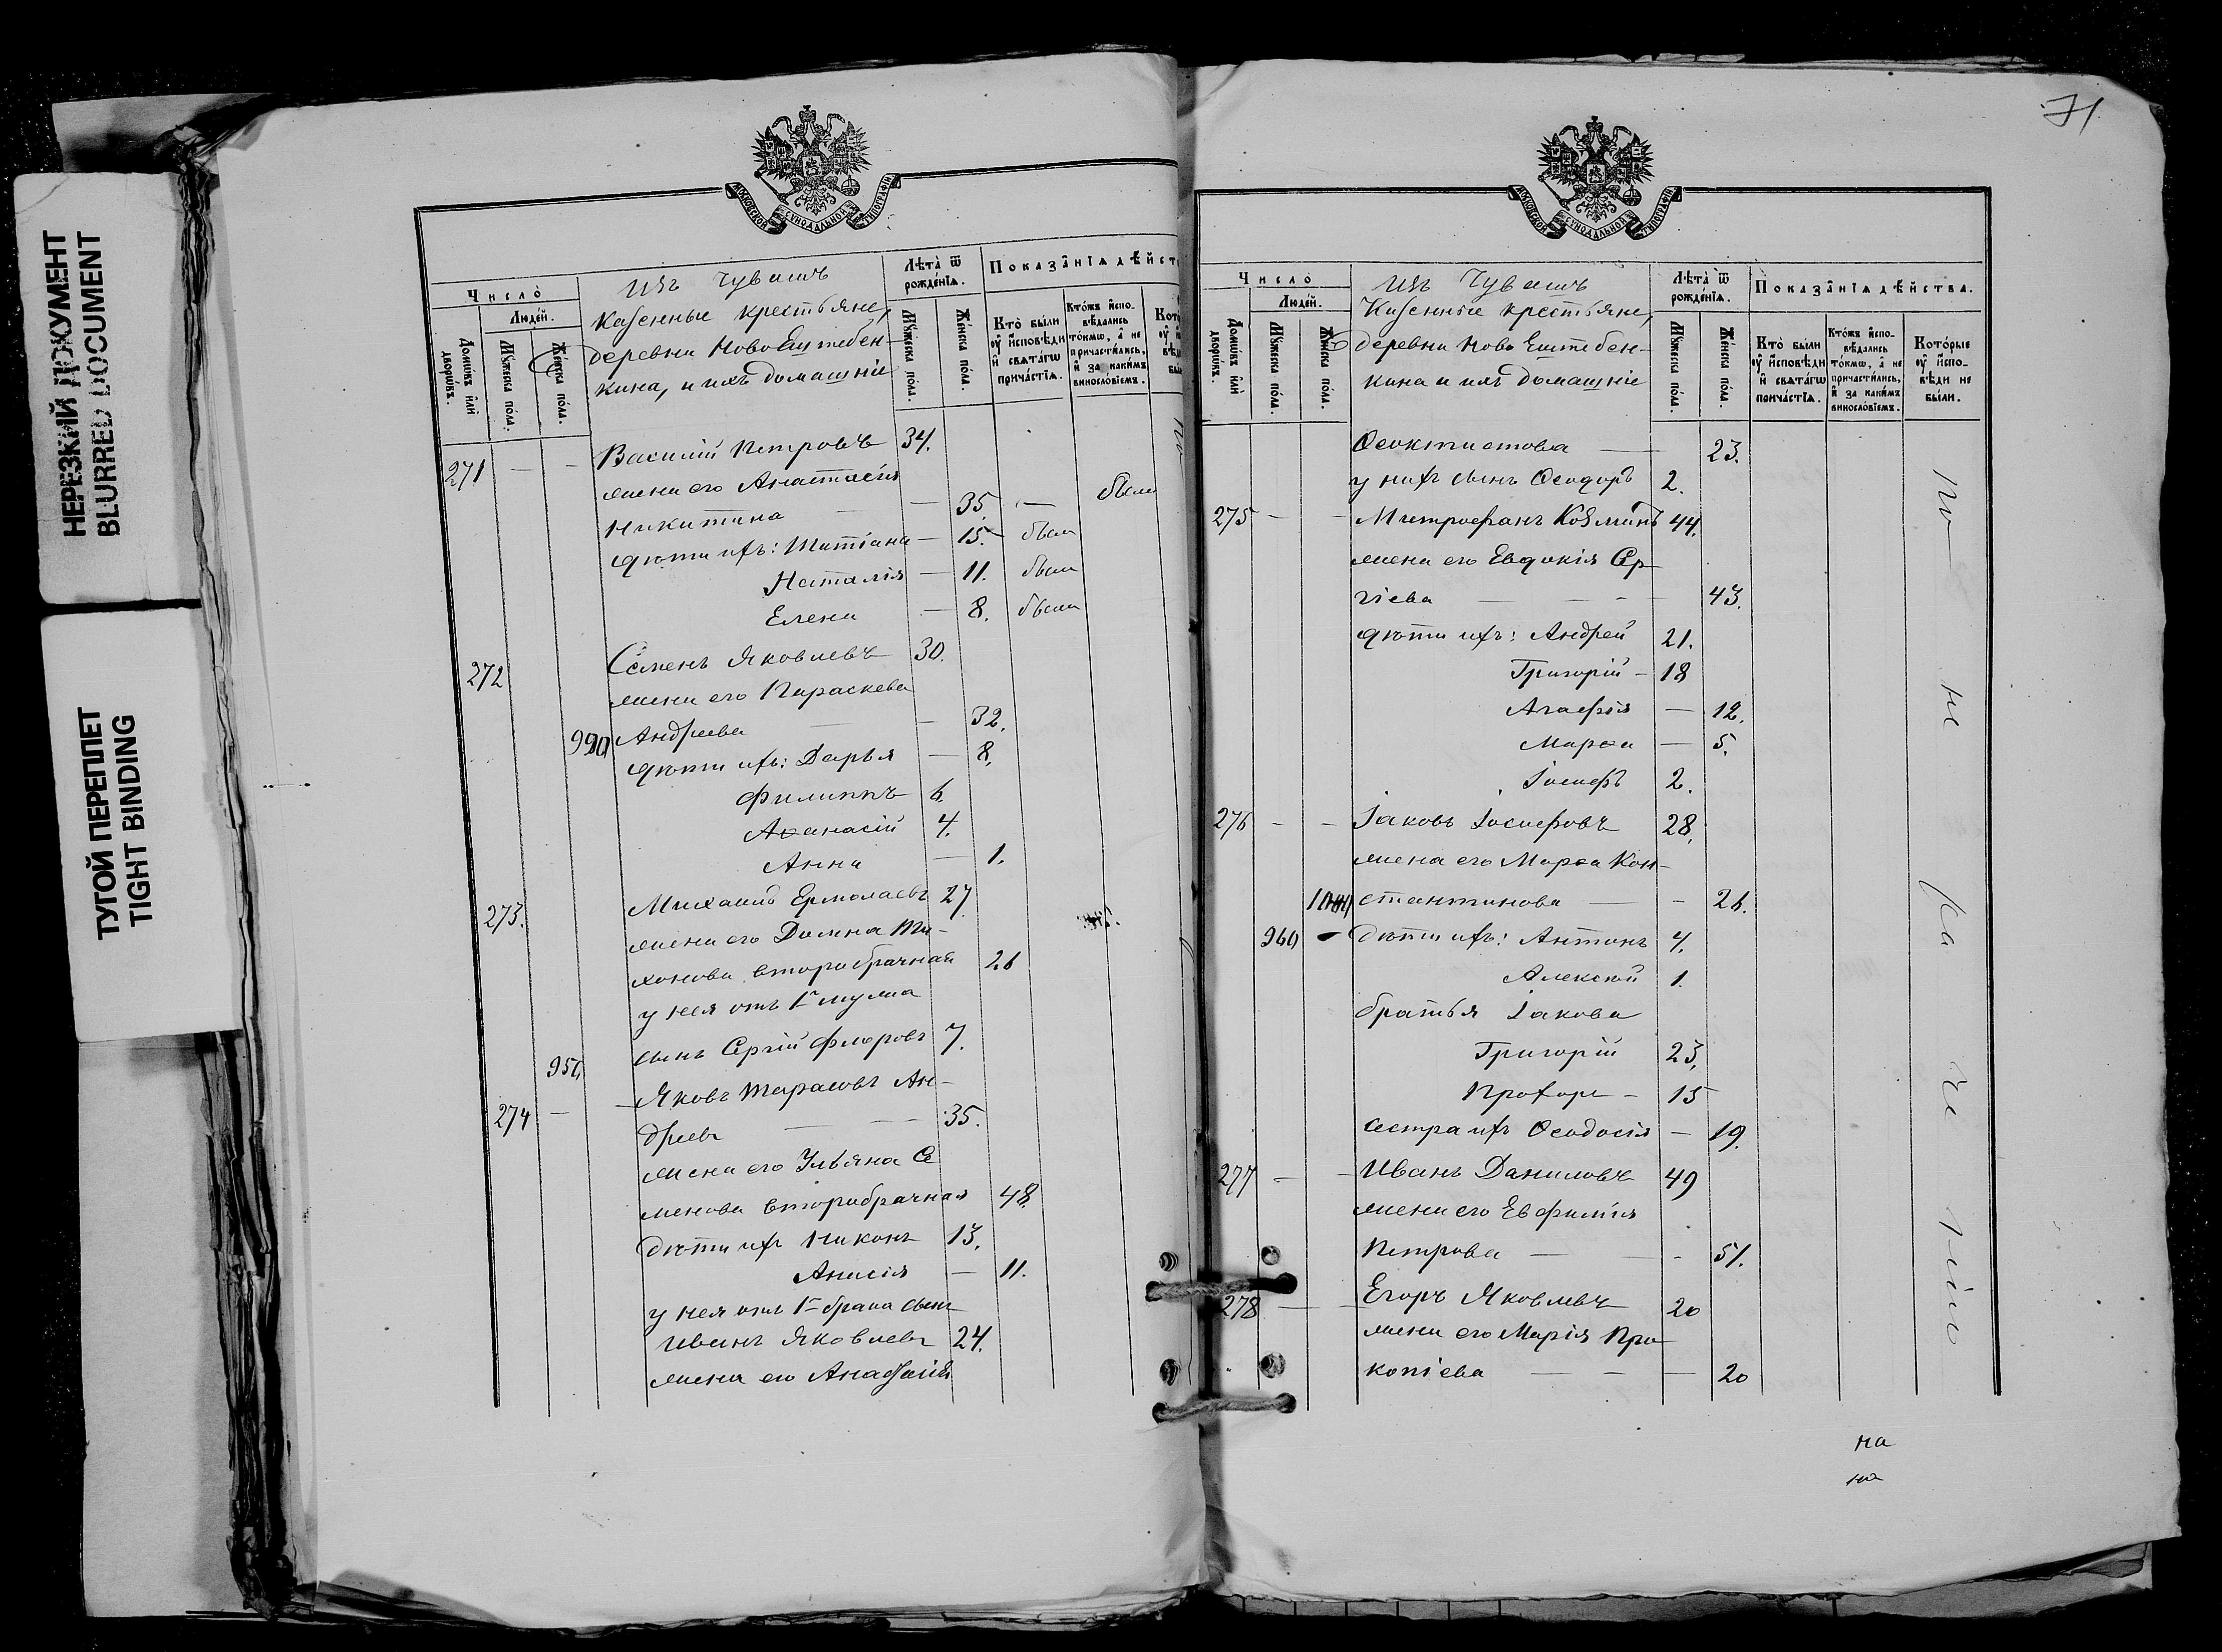 НЕРЕЗКИЙ ДОКУМЕНТ
BLURRED DOCUMENT
ТУГОЙ ПЕРЕПЛЕТ
TIGHT BINDING
МОСКОВСКОЙ СѴНОДАЛЬНОЙ ТИПОГРАФІИ
Число̀
Люде́й.
Домѡ́въ и҆лѝ дворѡ́въ.
Мꙋ́жеска по́ла.
Же́нска по́ла.
Изъ Чувашъ
Казенные крестьяне,
деревни Ново Ештебен-
кина, и ихъ домашніе
Лѣ́та ѿ рожде́нїѧ.
Мꙋ́жеска по́ла.
Же́нска по́ла.
Показа̑нїѧ дѣ́йст
Кто̀ бы́ли ᲂу҆ и҆сповѣ́ди и҆ свѧта́гѡ прича́стїѧ.
Кто́жъ и҆спо- вѣ́дались то́кмѡ, а҆ не причасти́лись, и҆ за каки́мъ винослови́емъ.
271 — — Василій Петровъ 34.
жена его Анастасія
Никитина — 35. — были
дѣти ихъ: Татіана — 15. — была
Наталія — 11. была
Елена — 8. была
272 Семенъ Яковлевъ 30.
жена его Параскева
990 Андреева — 32.
дѣти ихъ: Дарья — 8.
Филиппъ 6.
Аѳанасій 4.
Анна — 1.
273. Михаилъ Ермолаевъ 27
жена его Домна Ти-
хонова второбрачная 26
у нея отъ 1го мужа
950, сынъ Сергій Флоровъ 7.
274 — — Яковъ Тарасовъ Ан-
дреевъ — — 35.
жена его Ульяна Се
менова второбрачная 48.
дѣти ихъ Никонъ 13.
Анисія — 11.
у нея отъ 1го брака сынъ
Иванъ Яковлевъ 24.
жена его Анастасія
71
МОСКОВСКОЙ СѴНОДАЛЬНОЙ ТИПОГРАФІИ
Число̀
Люде́й.
Домѡ́въ и҆лѝ дворѡ́въ.
Мꙋ́жеска по́ла.
Же́нска по́ла.
Изъ Чувашъ
Казенные крестьяне,
деревни Ново Ештебен-
кина и ихъ домашніе
Лѣ́та ѿ рожде́нїѧ.
Мꙋ́жеска по́ла.
Же́нска по́ла.
Показа̑нїѧ дѣ́йства.
Кто̀ бы́ли ᲂу҆ и҆сповѣ́ди и҆ свѧта́гѡ прича́стїѧ.
Кто́жъ и҆спо- вѣ́дались то́кмѡ, а҆ не причасти́лись, и҆ за каки́мъ винослови́емъ.
Кото́рые ᲂу҆ и҆спо- вѣ́ди не бы́ли.
Ѳеоктистова — 23.
у нихъ сынъ Ѳеодоръ 2.
275 — — Митрофанъ Козминъ 44.
жена его Евдокія Сер-
гіева — — — 43.
дѣти ихъ: Андрей 21.
Григорій — 18
Агафія — 12.
Марѳа — 5.
Іосифъ 2.
276 — — Іаковъ Іосифовъ 28.
жена его Марѳа Кон-
стантинова — — 26.
960, дѣти ихъ: Антонъ 4.
Алексѣй 1.
братья Іакова
Григорій 23,
Прохоръ — 15
сестра ихъ Ѳеодосія — 19.
277 — — Иванъ Даниловъ 49
жена его Евфимія
Петрова — — 51.
278 — — Егоръ Яковлевъ 20
жена его Марія Про
копіева — — — 20
на
на